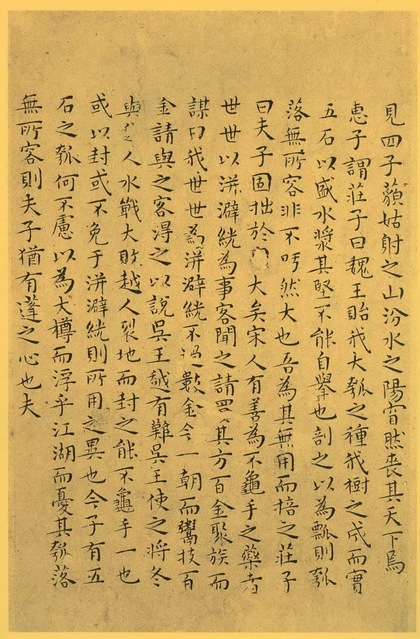 見四子藐姑射之山汾水之陽窅然喪其天下焉
惠子謂莊子曰魏王貽我大瓠之種我樹之成而實
五石以盛水漿其堅不能自舉也剖之以為瓢則瓠
落無所容非不呺然大也吾為其無用而掊之莊子
曰夫子固拙於 大矣宋人有善為不龜手之藥者
世世以洴澼絖為事客聞之請買其方百金聚族而
謀曰我世世為洴澼絖不過數金今一朝而鬻技百
金請與之客得之以說吳王越有難吳王使之將冬
與越人水戰大敗越人裂地而封之能不龜手一也
或以封或不免于洴澼絖則所用之異也今子有五
石之瓠何不慮以為大樽而浮乎江湖而憂其瓠落
無所容則夫子猶有蓬之心也夫